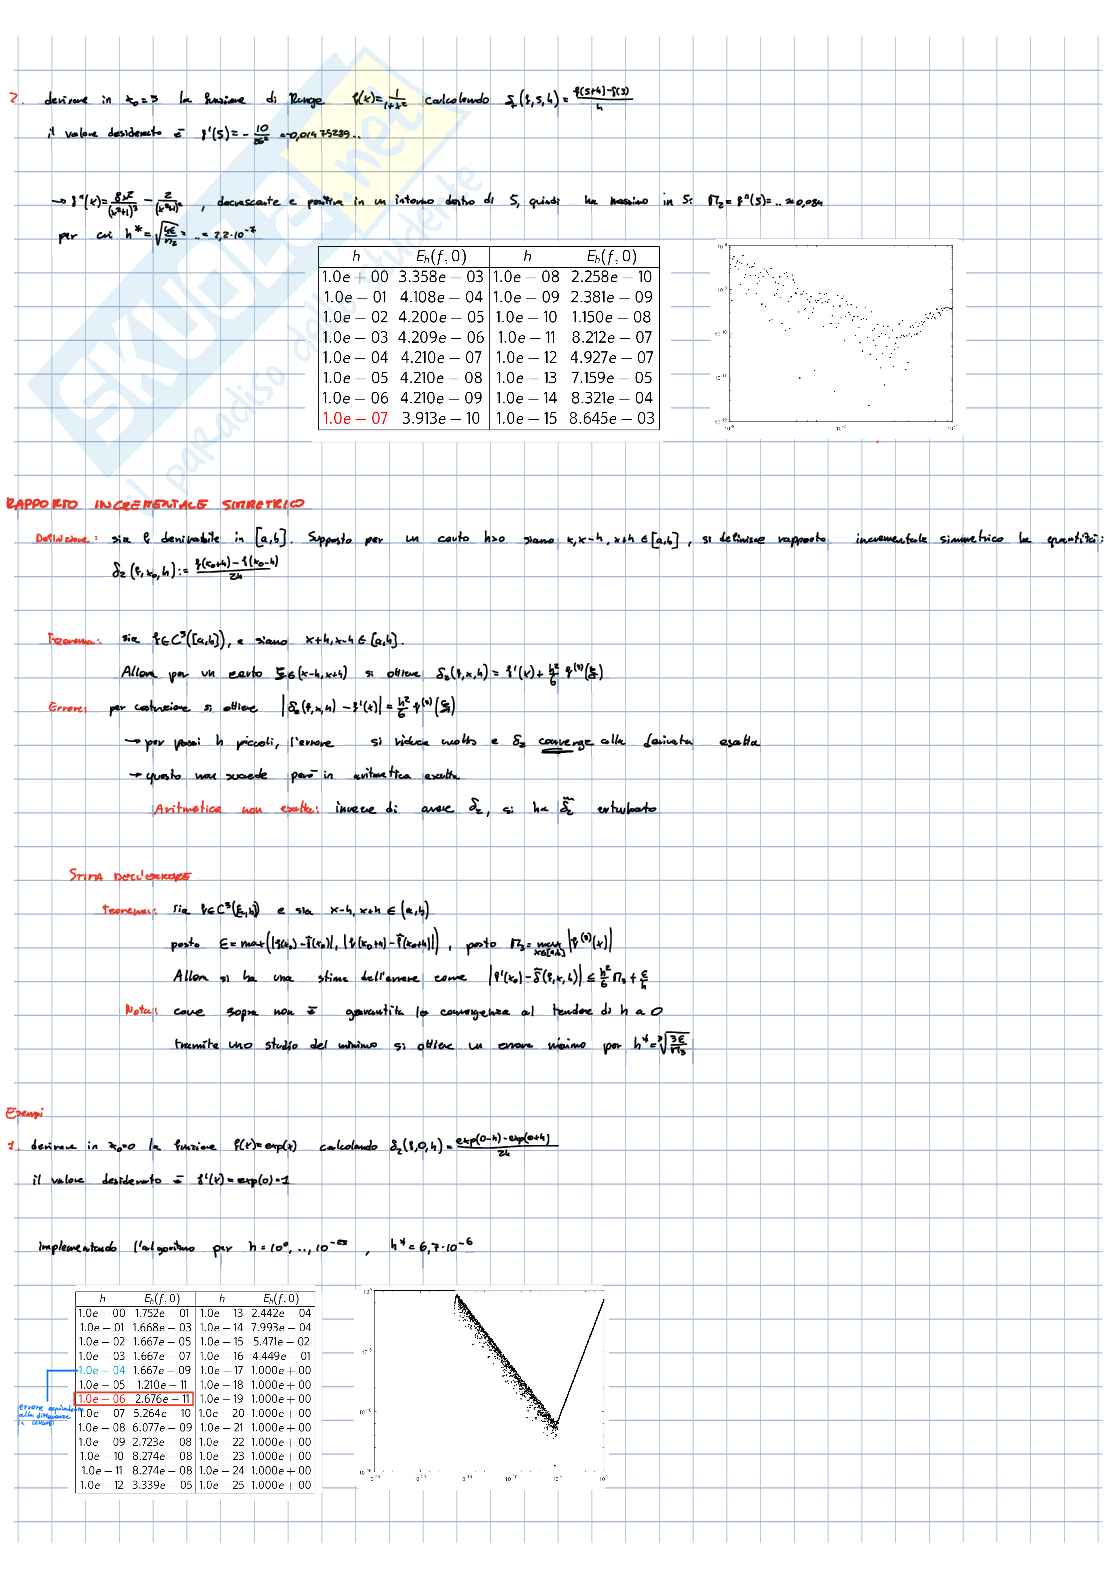 2. derivare in x₀=5 la funzione di Runge f(x)=1/(1+x²) calcolando δ₊(f,5,h)=(f(5+h)-f(5))/h
il valore desiderato è f'(5)=-10/26²=-0,01475289..
→ f"(x)=8x²/(x²+1)³ - 2/(x²+1)², decrescente e positiva in un intorno destro di 5, quindi ha massimo in 5: M₂=f"(5)=..≈0,084
per cui h*=√(4ε/M₂)=..=2,2·10⁻⁷
h Eh(f,0) h Eh(f,0)
1.0e+00 3.358e−03 1.0e−08 2.258e−10
1.0e−01 4.108e−04 1.0e−09 2.381e−09
1.0e−02 4.200e−05 1.0e−10 1.150e−08
1.0e−03 4.209e−06 1.0e−11 8.212e−07
1.0e−04 4.210e−07 1.0e−12 4.927e−07
1.0e−05 4.210e−08 1.0e−13 7.159e−05
1.0e−06 4.210e−09 1.0e−14 8.321e−04
1.0e−07 3.913e−10 1.0e−15 8.645e−03
SKUOLA.net
il paradiso dello studente
RAPPORTO INCREMENTALE SIMMETRICO
Definizione: sia f derivabile in [a,b]. Supposto per un certo h>0 siano x,x-h,x+h∈[a,b], si definisce rapporto incrementale simmetrico la quantità:
δ₂(f,x₀,h):=(f(x₀+h)-f(x₀-h))/2h
Teorema: sia f∈C³([a,b]), e siano x+h,x-h∈[a,b].
Allora per un certo ξ∈(x-h,x+h) si ottiene δ₂(f,x,h)=f'(x)+h²/6 f⁽³⁾(ξ)
Errore: per costruzione si ottiene |δ₂(f,x,h)-f'(x)|=h²/6 f⁽³⁾(ξ)
→ per passi h piccoli, l'errore si riduce molto e δ₂ converge alla derivata esatta
→ questo non succede però in aritmetica esatta
Aritmetica non esatta: invece di avere δ₂, si ha δ̃₂ erturbato
STIMA DELL'ERRORE
Teorema: sia f∈C³([a,b]) e sia x-h,x+h∈(a,b)
posto ε=max(|f(x₀)-f̃(x₀)|,|f(x₀+h)-f̃(x₀+h)|), posto M₃=max x∈[a,b] |f⁽³⁾(x)|
Allora si ha una stima dell'errore come |f'(x₀)-δ̃(f,x,h)|≤h²/6 M₃+ε/h
Nota: come sopra non è garantita la convergenza al tendere di h a 0
tramite uno studio del minimo si ottiene un errore minimo per h*=³√(3ε/M₃)
Esempi
1. derivare in x₀=0 la funzione f(x)=exp(x) calcolando δ₂(f,0,h)=(exp(0-h)-exp(0+h))/2h
il valore desiderato è f'(x)=exp(0)=1
implementando l'algoritmo per h=10⁰,..,10⁻²⁵, h*=6,7·10⁻⁶
h Eh(f,0) h Eh(f,0)
1.0e 00 1.752e 01 1.0e 13 2.442e 04
1.0e−01 1.668e−03 1.0e−14 7.993e−04
1.0e−02 1.667e−05 1.0e−15 5.471e−02
1.0e 03 1.667e 07 1.0e 16 4.449e 01
1.0e−04 1.667e−09 1.0e−17 1.000e+00
1.0e−05 1.210e−11 1.0e−18 1.000e+00
1.0e−06 2.676e−11 1.0e−19 1.000e+00
1.0e 07 5.264e 10 1.0e 20 1.000e+00
1.0e−08 6.077e−09 1.0e−21 1.000e+00
1.0e 09 2.723e 08 1.0e 22 1.000e+00
1.0e 10 8.274e 08 1.0e 23 1.000e+00
1.0e−11 8.274e−08 1.0e−24 1.000e+00
1.0e 12 3.339e 05 1.0e 25 1.000e+00
errore equivalente
alla differenza
in